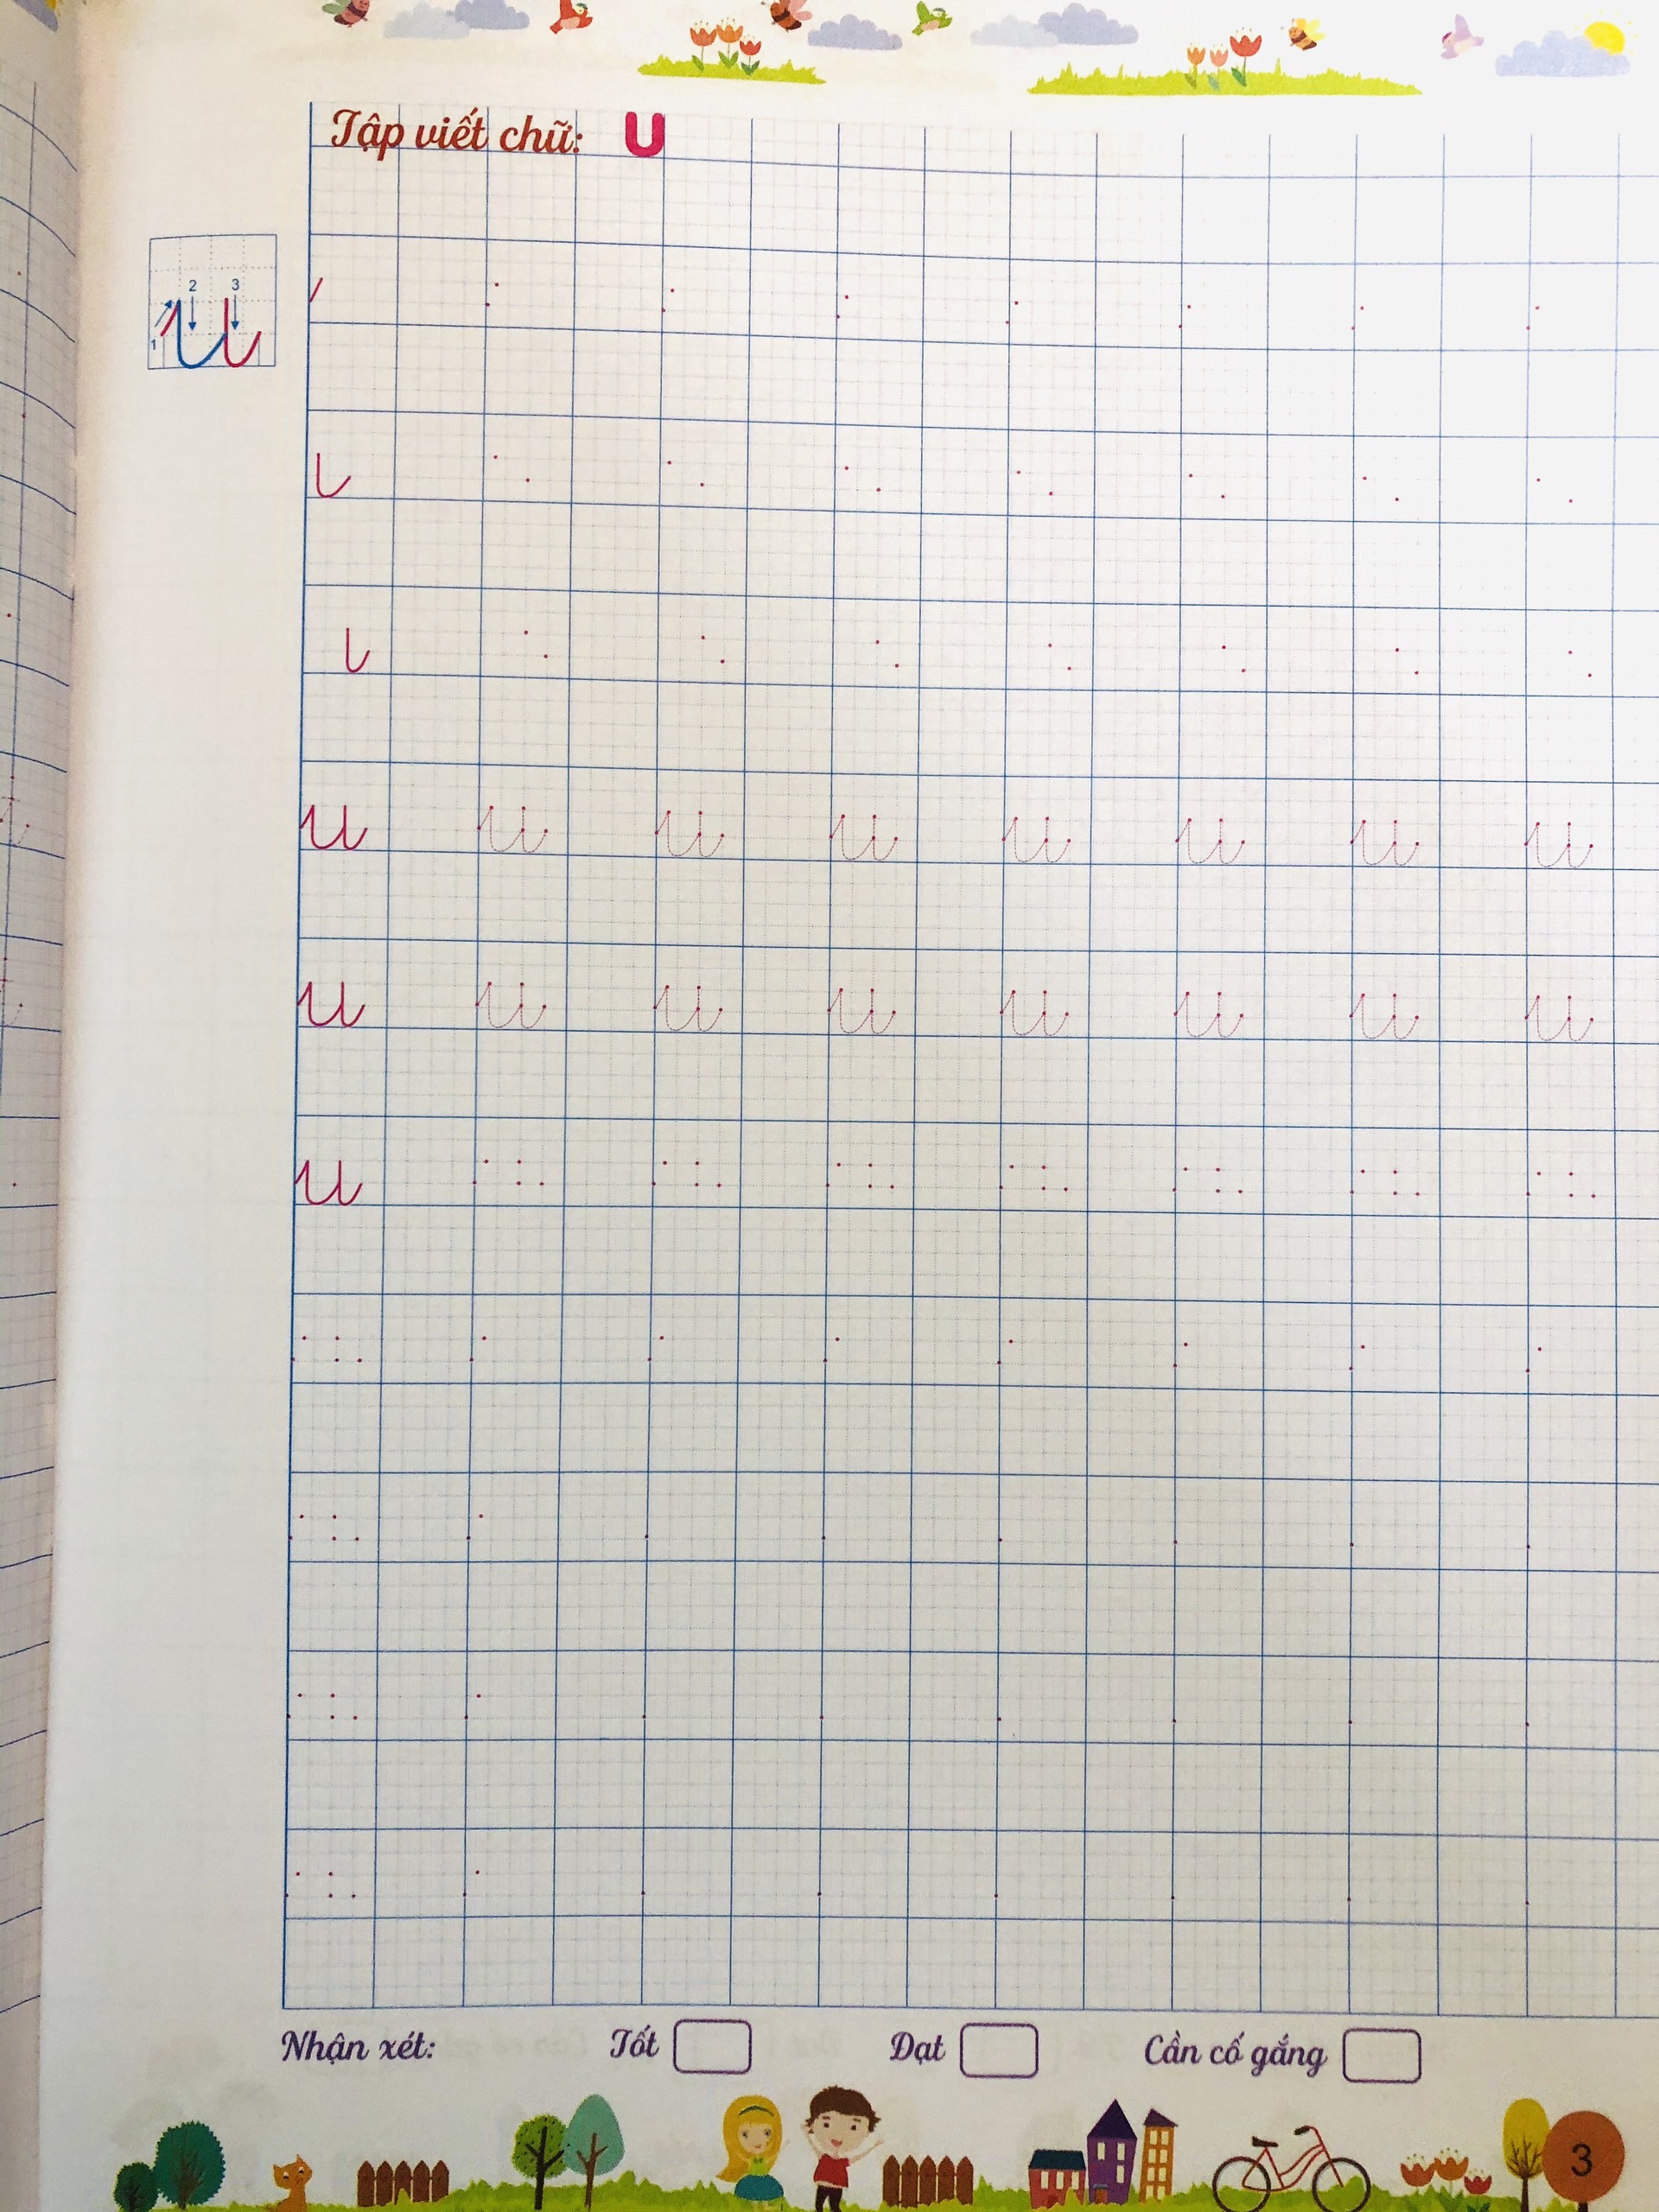 Tập viết chữ: U
2 3
1
u
u u u u u u u u
u u u u u u u u
u
Nhận xét: Tốt Đạt Cần cố gắng
3